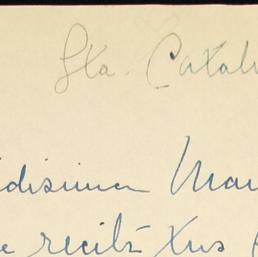 Sta. Catali
idisima Mar
e recibí tus